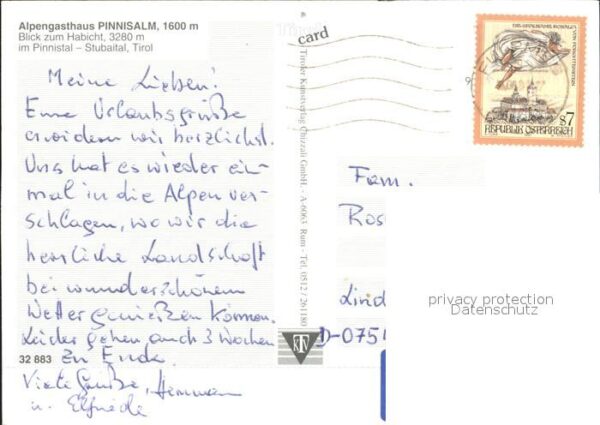 Alpengasthaus PINNISALM, 1600 m
Blick zum Habicht, 3280 m
im Pinnistal – Stubaital, Tirol
card
Meine Lieben!
Eure Urlaubsgrüße
erwidern wir herzlichst.
Uns hat es wieder ein-
mal in die Alpen ver-
schlagen, wo wir die
herrliche Landschaft
bei wunderschönem
Wetter genießen können.
Leider gehen auch 3 Wochen
zu Ende.
Viele Grüße, Hermann
u. Elfriede
32 883
Tiroler Kunstverlag Chizzali GmbH. - A-6063 Rum - Tel. 0512 / 261180
KTV
S7
REPUBLIK ÖSTERREICH
Fam.
Ros
Lind
D-0751
privacy protection
Datenschutz